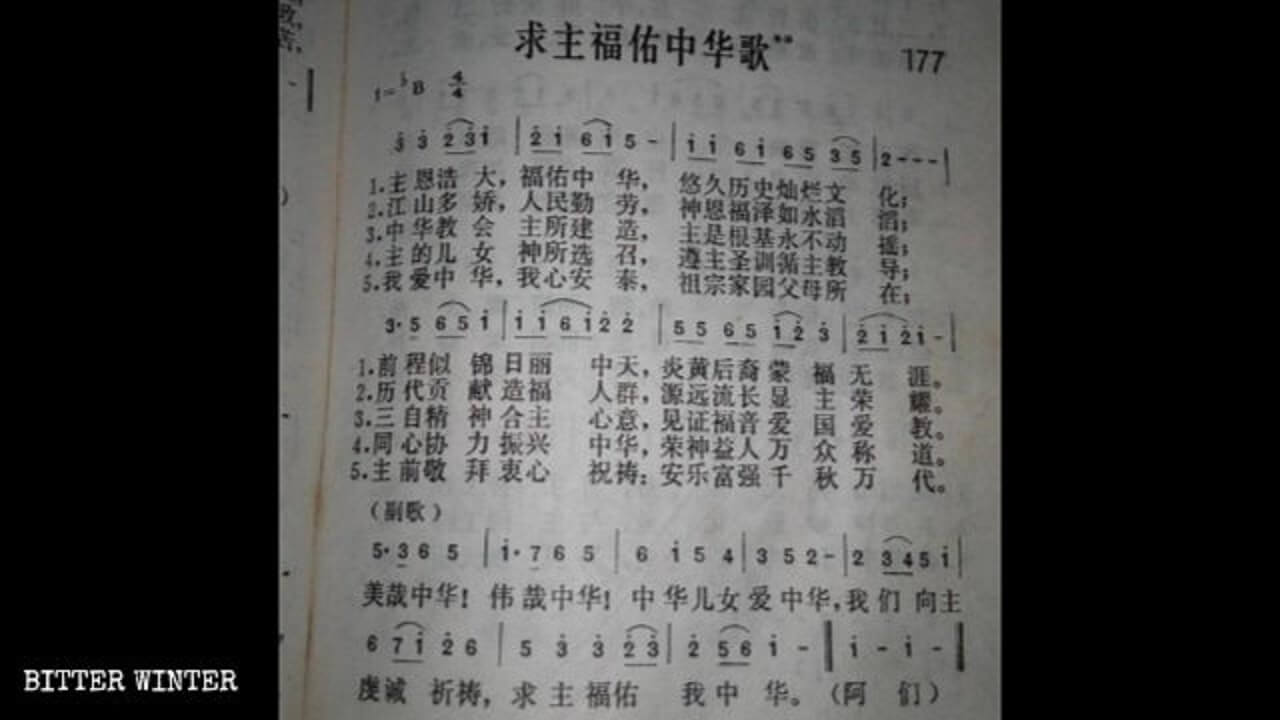 求主福佑中华歌** 177
1=♭B 4/4
3 3 2 3 1 | 2 1 6 1 5 - | 1 1 6 1 6 5 3 5 | 2 - - - |
1.主恩浩大，福佑中华， 悠久历史灿烂文化；
2.江山多娇，人民勤劳， 神恩福泽如水滔滔；
3.中华教会 主所建造， 主是根基永不动摇；
4.主的儿女 神所选召， 遵主圣训循主教导；
5.我爱中华，我心安泰， 祖宗家园父母所在；
3· 5 6 5 1 | 1 1 6 1 2 2 | 5 5 6 5 1 2 3 | 2 1 2 1 - |
1.前程似锦日丽中天，炎黄后裔蒙福无涯。
2.历代贡献造福人群，源远流长显主荣耀。
3.三自精神合主心意，见证福音爱国爱教。
4.同心协力振兴中华，荣神益人万众称道。
5.主前敬拜衷心祝祷：安乐富强千秋万代。
（副歌）
5· 3 6 5 | 1· 7 6 5 | 6 1 5 4 | 3 5 2 - | 2 3 4 5 1 |
美哉中华！伟哉中华！中华儿女爱中华，我们向主
6 7 1 2 6 | 5 3 3 2 3 | 2 5 6 1 - ‖ 1 - 1 - ‖
虔诚祈祷，求主福佑 我中华。（阿们）
BITTER WINTER